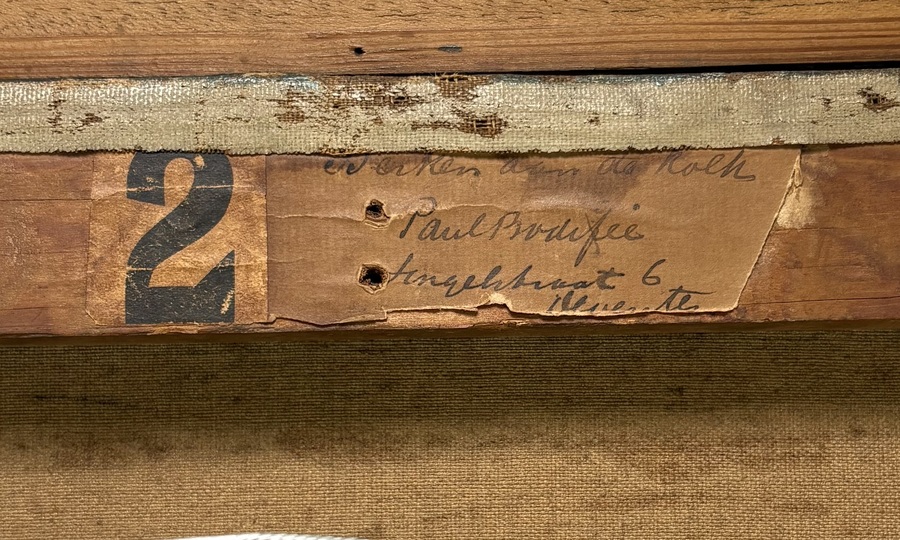 2
Werken aan de Kolk
Paul Bodifée
Singelstraat 6
Deventer